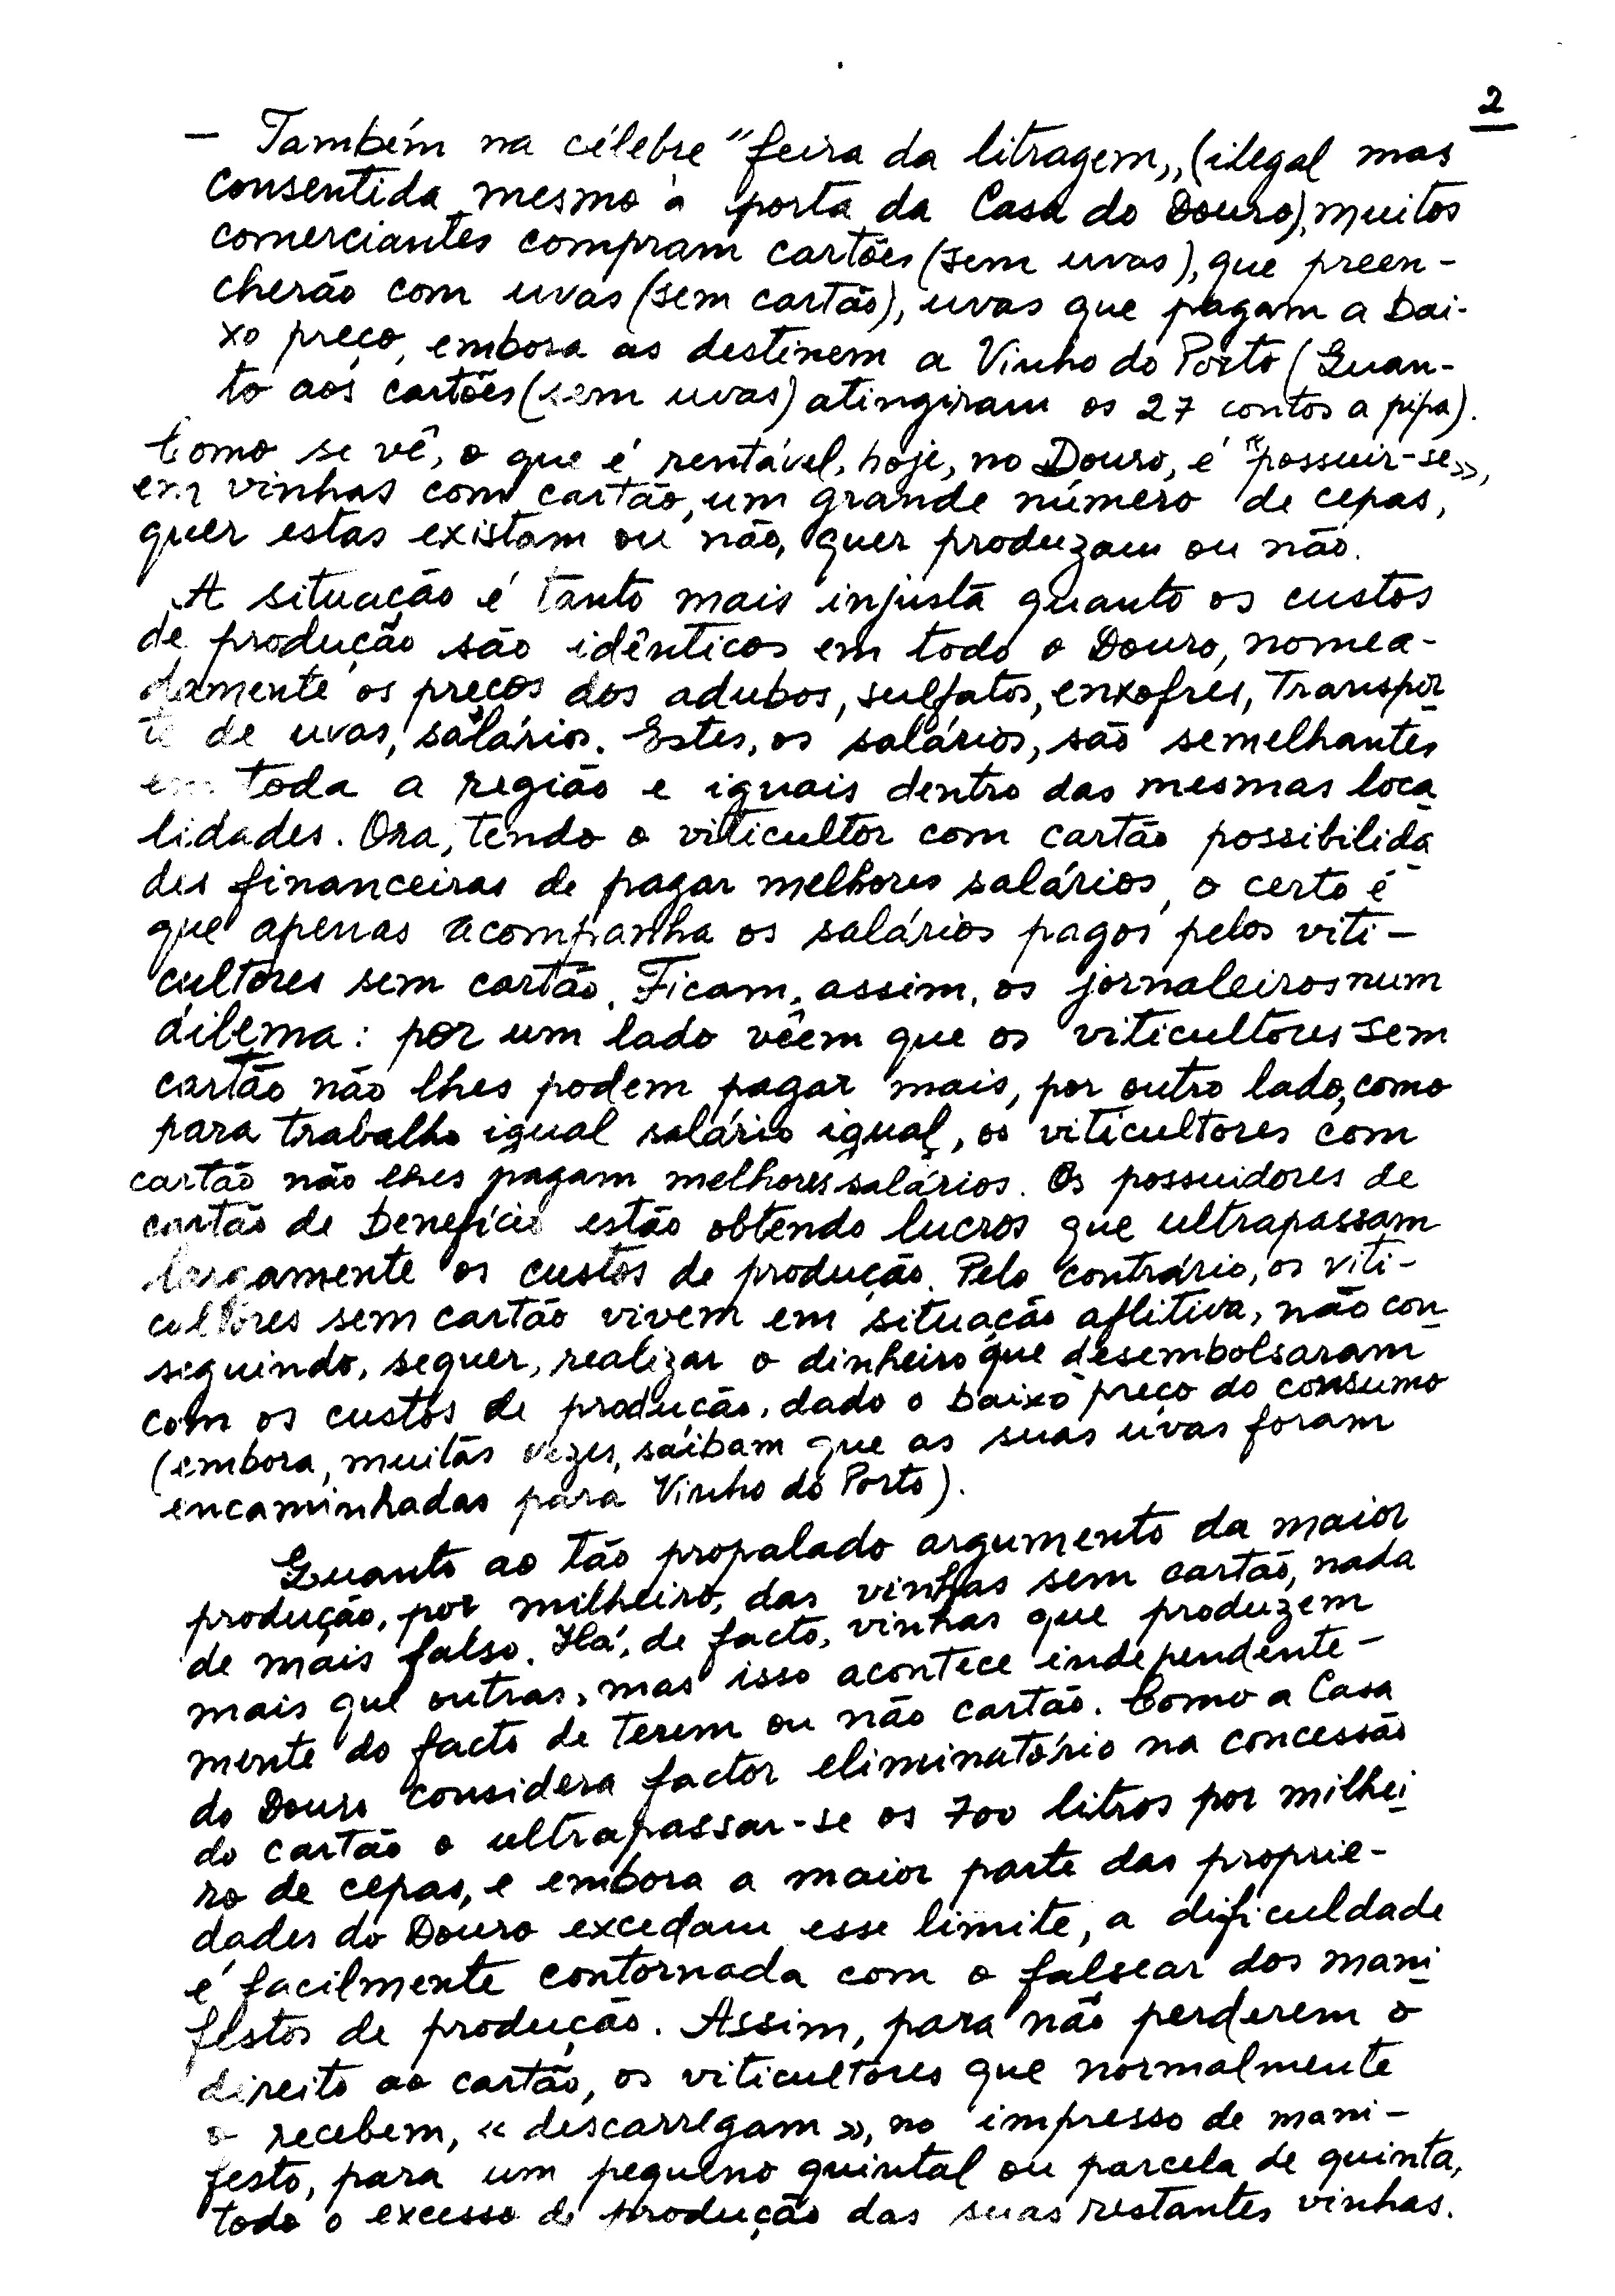 2
— Também na célebre "feira da litragem,, (ilegal mas
consentida mesmo à porta da Casa do Douro), muitos
comerciantes compram cartões (sem uvas), que preen-
cherão com uvas (sem cartão), uvas que pagam a bai-
xo preço, embora as destinem a Vinho do Porto (Quan-
to aos cartões (sem uvas) atingiram os 27 contos a pipa).
Como se vê, o que é rentável, hoje, no Douro, é «possuir-se»,
em vinhas com cartão, um grande número de cepas,
quer estas existam ou não, quer produzam ou não.
A situação é tanto mais injusta quanto os custos
de produção são idênticos em todo o Douro, nomea-
damente os preços dos adubos, sulfatos, enxofres, transpor
te de uvas, salários. Estes, os salários, são semelhantes
em toda a região e iguais dentro das mesmas loca
lidades. Ora, tendo o viticultor com cartão possibilida
des financeiras de pagar melhores salários, o certo é
que apenas acompanha os salários pagos pelos viti-
cultores sem cartão. Ficam, assim, os jornaleiros num
dilema: por um lado vêem que os viticultores sem
cartão não lhes podem pagar mais, por outro lado, como
para trabalho igual salário igual, os viticultores com
cartão não lhes pagam melhores salários. Os possuidores de
cartão de benefício estão obtendo lucros que ultrapassam
largamente os custos de produção. Pelo contrário, os viti-
cultores sem cartão vivem em situação aflitiva, não con
seguindo, sequer, realizar o dinheiro que desembolsaram
com os custos de produção, dado o baixo preço do consumo
(embora, muitas vezes, saibam que as suas uvas foram
encaminhadas para Vinho do Porto).
Quanto ao tão propalado argumento da maior
produção, por milheiro, das vinhas sem cartão, nada
de mais falso. Há, de facto, vinhas que produzem
mais que outras, mas isso acontece independente-
mente do facto de terem ou não cartão. Como a Casa
do Douro considera factor eliminatório na concessão
do cartão o ultrapassar-se os 700 litros por milhei
ro de cepas, e embora a maior parte das proprie-
dades do Douro excedam esse limite, a dificuldade
é facilmente contornada com o falsear dos mani
festos de produção. Assim, para não perderem o
direito ao cartão, os viticultores que normalmente
o recebem, «descarregam», no impresso de mani-
festo, para um pequeno quintal ou parcela de quinta,
todo o excesso de produção das suas restantes vinhas.